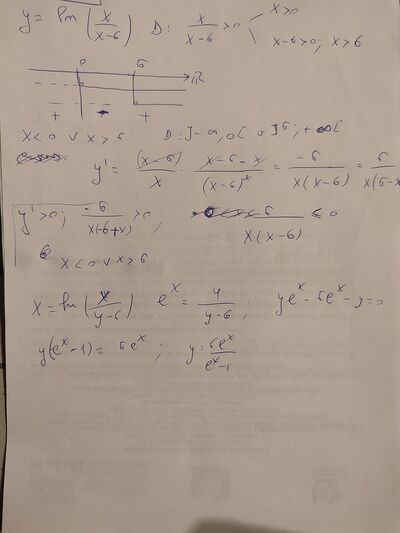 y = ln (x/(x-6)) D: x/(x-6) > 0 x>0
x-6>0; x>6
0 6 R
- - -
+ - +
x<0 ∨ x>6 D: ]-∞, 0[ ∪ ]6; +∞[
y' = (x-6)/x · (x-6-x)/(x-6)² = -6/(x(x-6)) = 6/(x(6-x
y'>0; -6/(x(-6+x)) >0; 6/(x(x-6)) ≤ 0
x<0 ∨ x>6
x = ln (y/(y-6)) e^x = y/(y-6); ye^x - 6e^x - y = 0
y(e^x - 1) = 6e^x; y = 6e^x/(e^x-1)